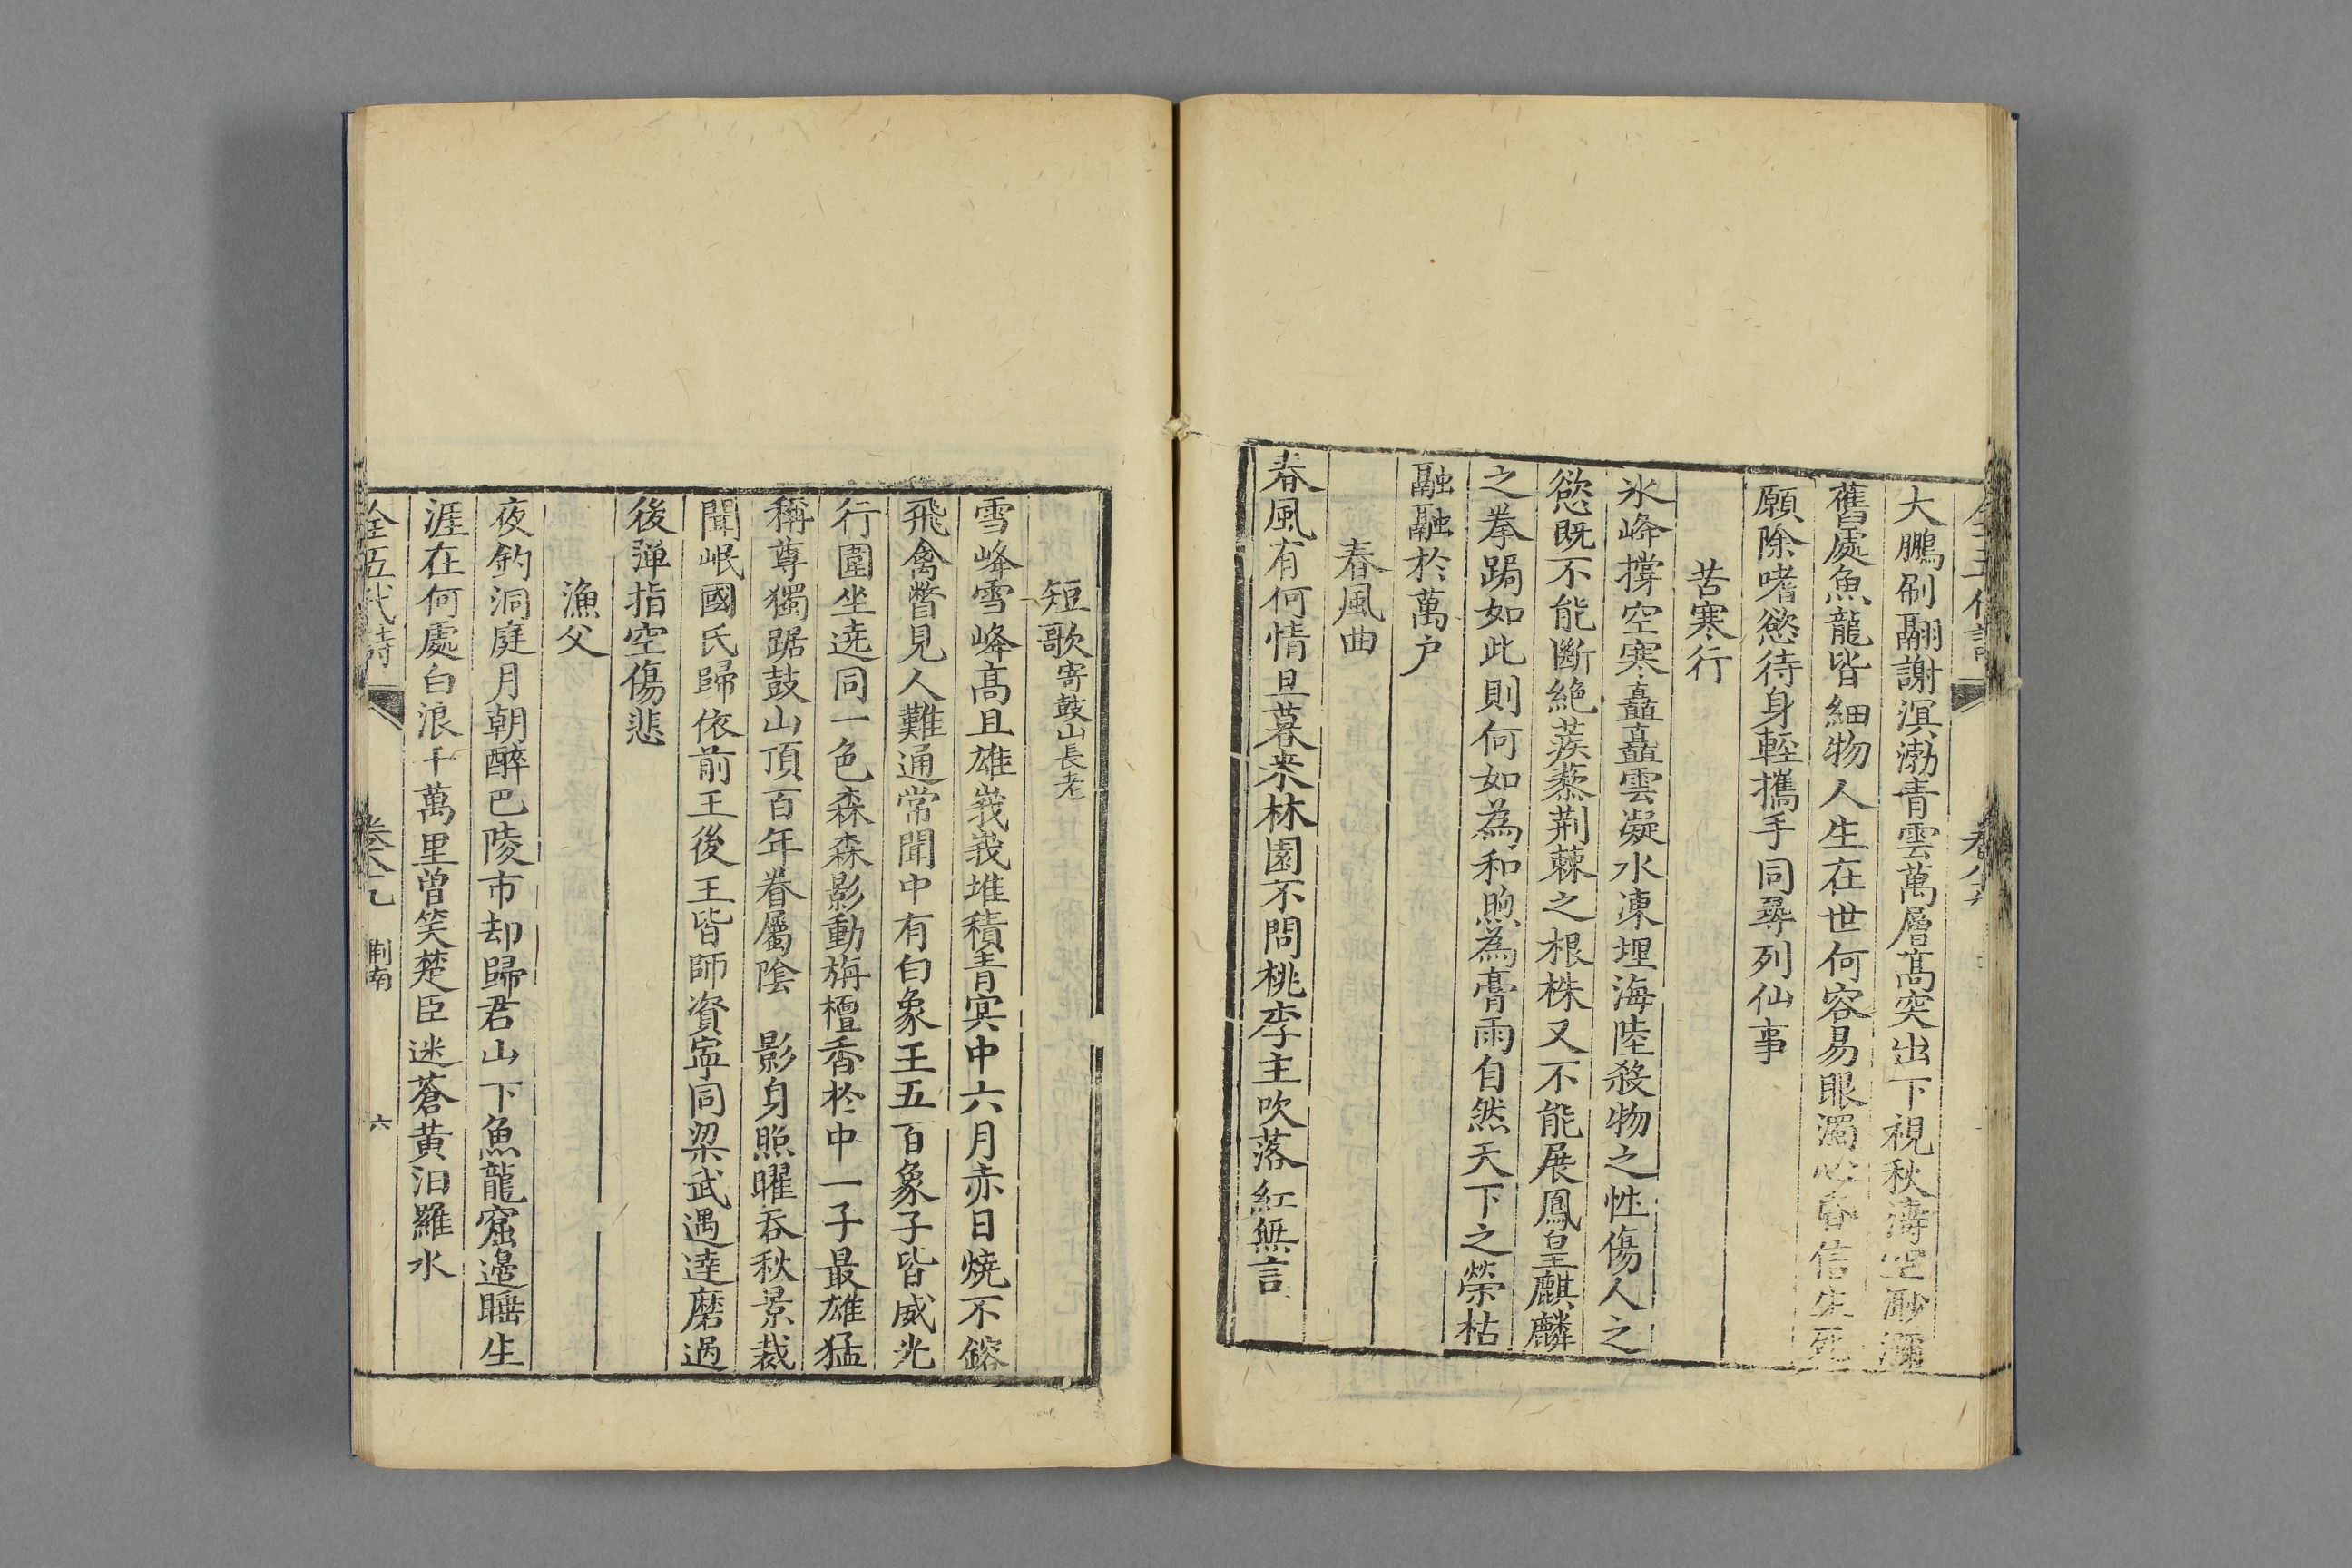 大鵬刷翮謝溟渤青雲萬層髙突出下視秋濤空渺瀰
舊處魚龍皆細物人生在世何容易眼濁心昏信生死
願除嗜慾待身輕攜手同尋列仙事
苦寒行
氷峰撐空寒矗矗雲凝水凍埋海陸殺物之性傷人之
慾既不能斷絶蒺藜荆棘之根株又不能展鳳皇麒麟
之拳跼如此則何如為和煦為膏雨自然天下之榮枯
融融於萬户
春風曲
春風有何情旦暮来林園不問桃李主吹落紅無言
短歌寄鼓山長老
雪峰雪峰髙且雄峩峩堆積青冥中六月赤日燒不鎔
飛禽瞥見人難通常聞中有白象王五百象子皆威光
行圍坐遶同一色森森影動栴檀香於中一子最雄猛
稱尊獨踞鼓山頂百年眷屬陰 影身照曜吞秋景裁
聞岷國氏歸依前王後王皆師資寧同梁武遇達磨過
後彈指空傷悲
漁父
夜釣洞庭月朝醉巴陵市却歸君山下魚龍窟邊睡生
涯在何處白浪千萬里曽笑楚臣迷蒼黄汨羅水
全五代詩 卷八九 荆南 六